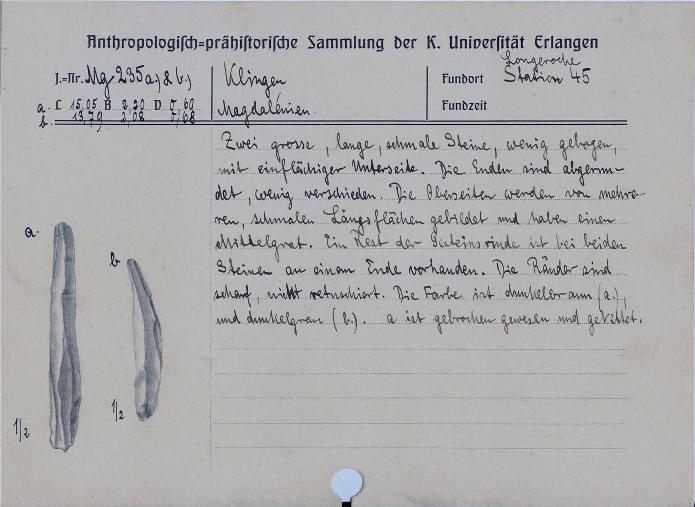 Anthropologisch=prähistorische Sammlung der K. Universität Erlangen
J.=Nr. Mg 235a,) & b.)
Klingen
Fundort Longeroche
Station 45
a. L 15,05 B 3,20 D
b. 13,79 2,08
Magdalénien.
Fundzeit
Zwei grosse, lange, schmale Steine, wenig gebogen,
mit einflächiger Unterseite. Die Enden sind abgerun-
det, wenig verschieden. Die Oberseiten werden von mehre-
ren, schmalen Längsflächen gebildet und haben einen
Mittelgrat. Ein Rest der Gesteinsrinde ist bei beiden
Steinen an einem Ende vorhanden. Die Ränder sind
scharf, nicht retuschiert. Die Farbe ist dunkelbraun (a.),
und dunkelgrau (b.). a ist gebrochen gewesen und gekittet.
a.
b
1/2
1/2